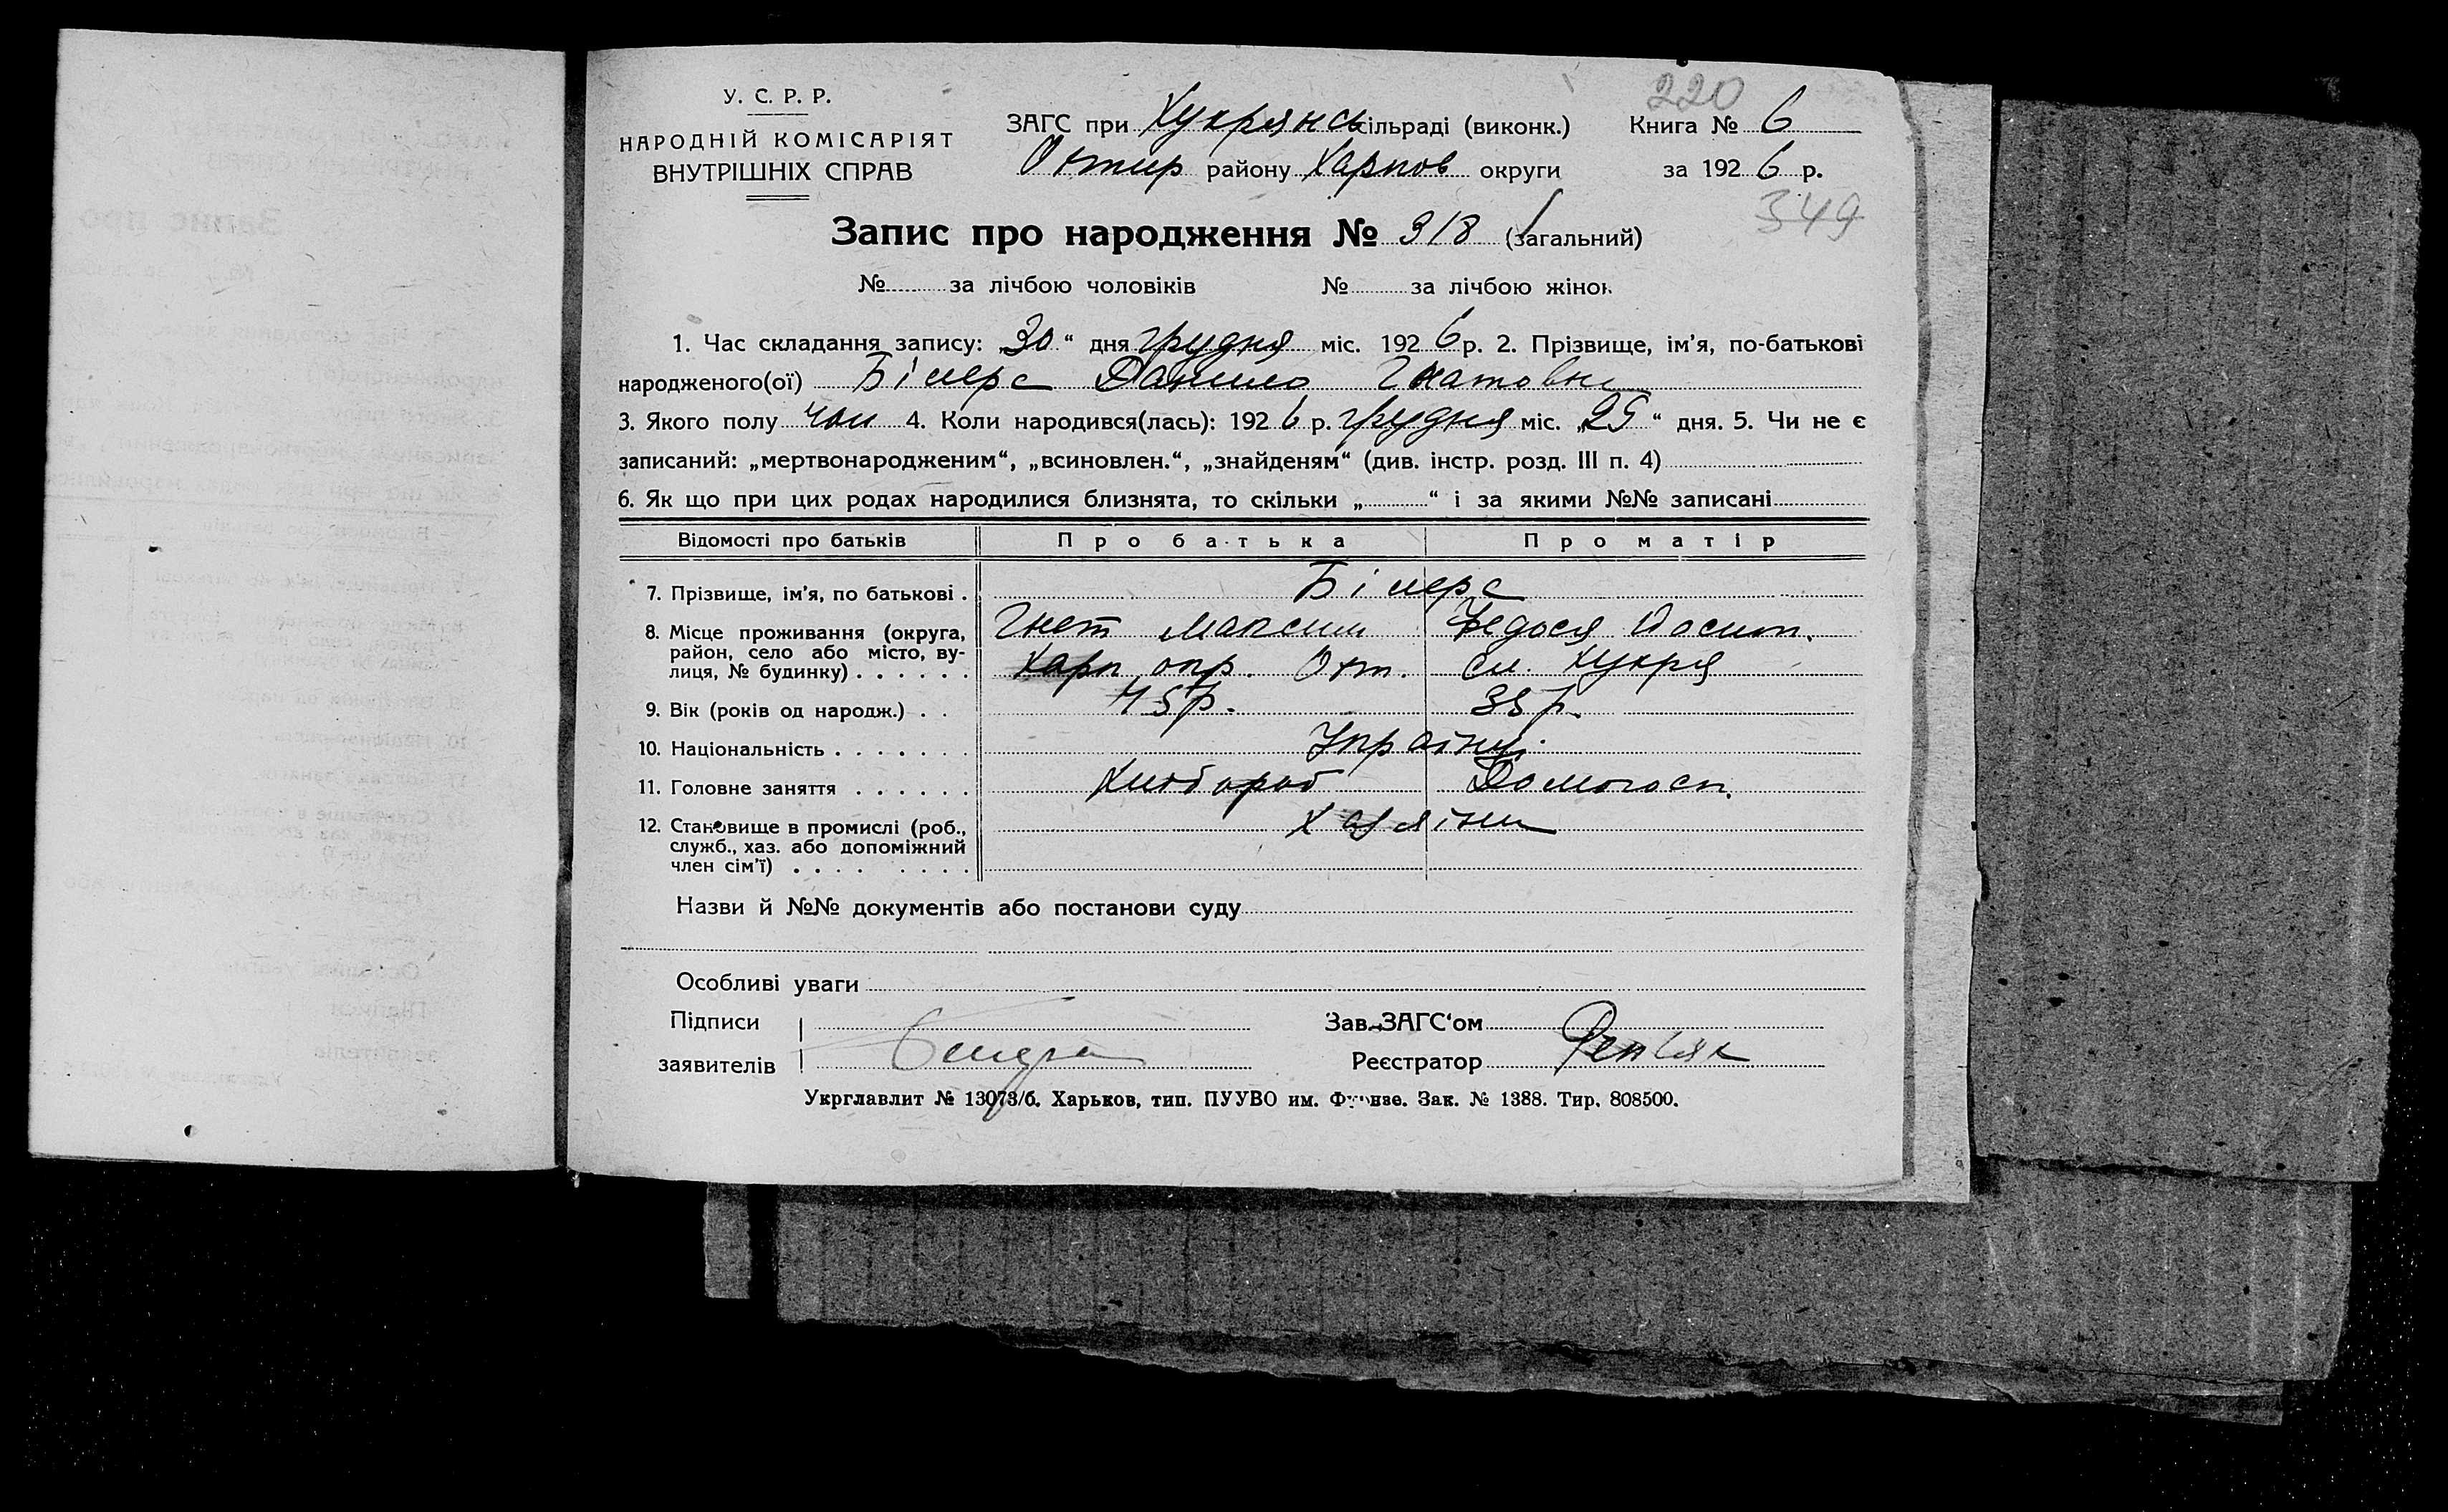 220
У. С. Р. Р.
НАРОДНІЙ КОМІСАРІЯТ
ВНУТРІШНІХ СПРАВ
ЗАГС при Хукрянсь ільраді (виконк.) Книга № 6
Охтир району Харков округи за 192 6 р.
349
Запис про народження № 318 (загальний)
№ за лічбою чоловіків № за лічбою жінок
1. Час складання запису: „30“ дня грудня міс. 192 6 р. 2. Прізвище, ім’я, по-батькові
народженого(ої) Данило Гнатович
3. Якого полу чол 4. Коли народився(лась): 192 6 р. грудня міс. „25“ дня. 5. Чи не є
записаний: „мертвонародженим“, „всиновлен.“, „знайденям“ (див. інстр. розд. III п. 4)
6. Як що при цих родах народилися близнята, то скільки „ “ і за якими №№ записані
Відомості про батьків Про батька Про матір
7. Прізвище, ім’я, по батькові .
8. Місце проживання (округа, Гнат Максим Федося Йосип.
район, село або місто, ву-
лиця, № будинку) . . . . . . Харк окр. Охт. сл. Хукря
9. Вік (років од народж.) . . 45 р. 35 р.
10. Національність . . . . . . . Українці
11. Головне заняття . . . . . . Хлібороб Домогосп.
12. Становище в промислі (роб., Хазяїни
служб., хаз. або допоміжний
член сім’ї) . . . . . . . .
Назви й №№ документів або постанови суду
Особливі уваги
Підписи
заявителів
Зав. ЗАГС‘ом
Реєстратор
Укрглавлит № 13073/б. Харьков, тип. ПУУВО им. Фрунзе. Зак. № 1388. Тир. 808500.